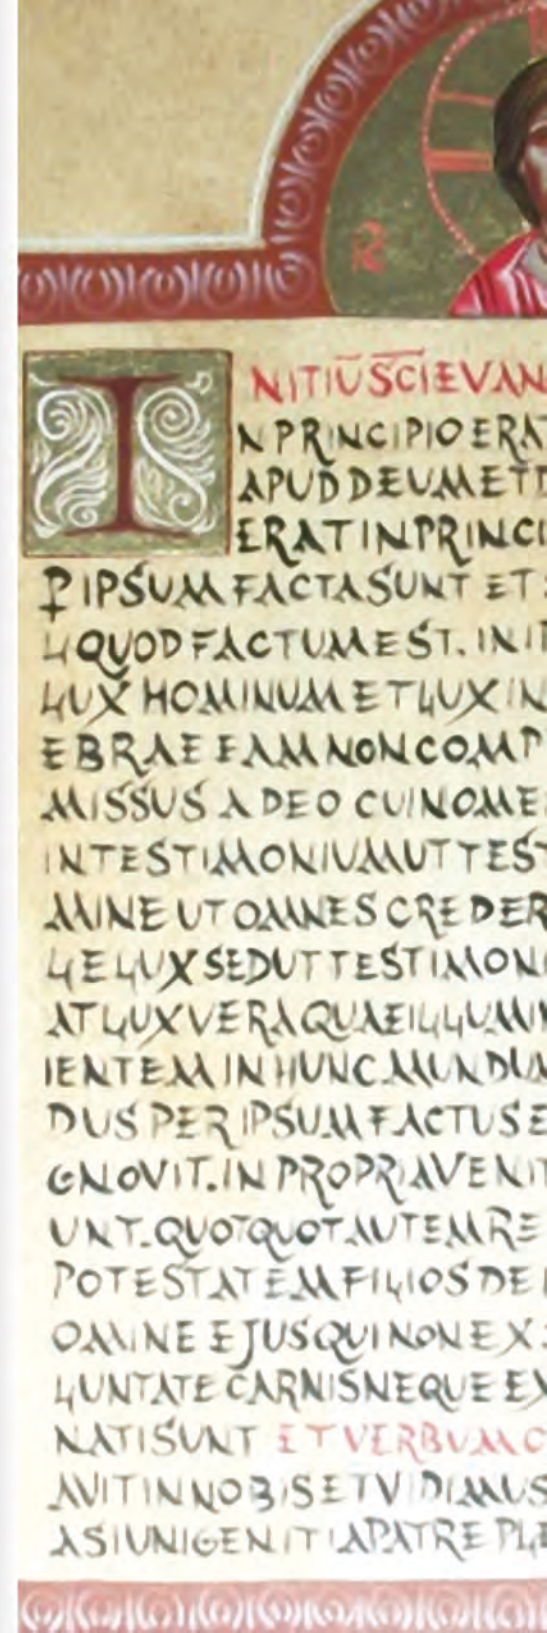 I
NITIŪ SC̄I EVAN
N PRINCIPIO ERAT
APUD DEUM ET D
ERAT IN PRINCI
P IPSUM FACTA SUNT ET S
L QUOD FACTUM EST. IN IP
LUX HOMINUM ET LUX IN
EBRAE EAM NON COMP
MISSUS A DEO CUI NOME
IN TESTIMONIUM UT TEST
MINE UT OMNES CREDER
LE LUX SED UT TESTIMONI
AT LUX VERA QUAE ILLUMIN
IENTEM IN HUNC MUNDUM
DUS PER IPSUM FACTUS E
GNOVIT. IN PROPRIA VENIT
UNT. QUOTQUOT AUTEM RE
POTESTATEM FILIOS DEI
OMINE EJUS QUI NON EX S
LUNTATE CARNIS NEQUE EX
NATI SUNT ET VERBUM C
AVIT IN NOBIS ET VIDIMUS
ASI UNIGENITI A PATRE PLE